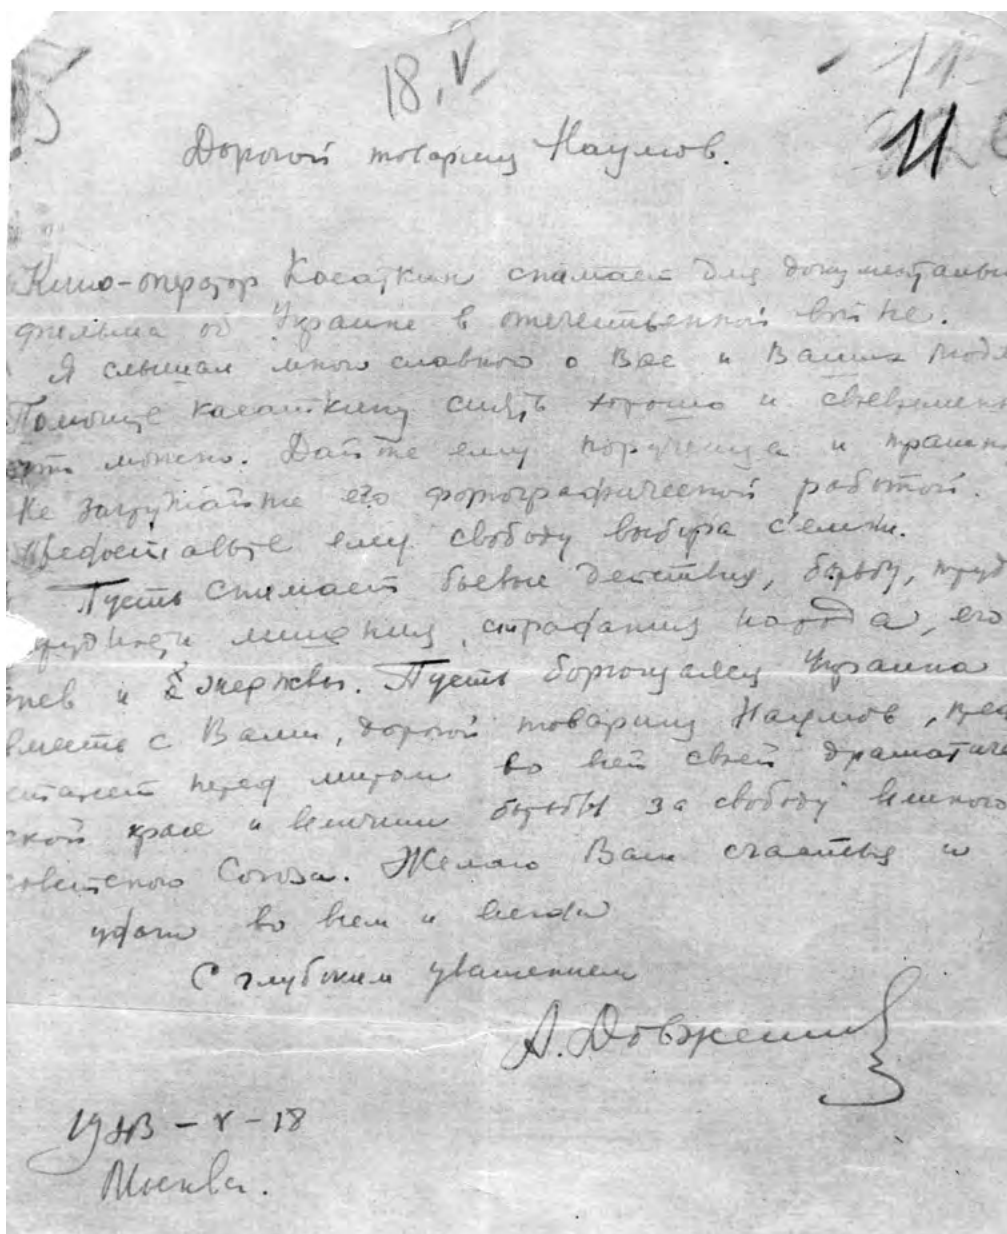 18.V
11
11
Дорогой товарищ Наумов.
Кино-оператор Касаткин снимает для документальн
фильма об Украине в отечественной войне.
Я слышал много славного о Вас и Ваших людя
Помогите Касаткину снять хорошо и своевременн
что можно. Дайте ему поручения и
Не загружайте его фотографической работой.
предоставьте ему свободу выбора с'емки.
Пусть снимает боевые действия, борьбу, труд
трудности лишения, страдания народа, его
гнев и жертвы. Пусть борющаяся Украина
вместе с Вами, дорогой товарищ Наумов, пред
станет перед миром во всей своей драматиче
ской красе и величии борьбы за свободу великого
советского Союза. Желаю Вам счастья и
удачи во всем и всегда
С глубоким уважением
А. Довженко
1943-V-18
Москва.